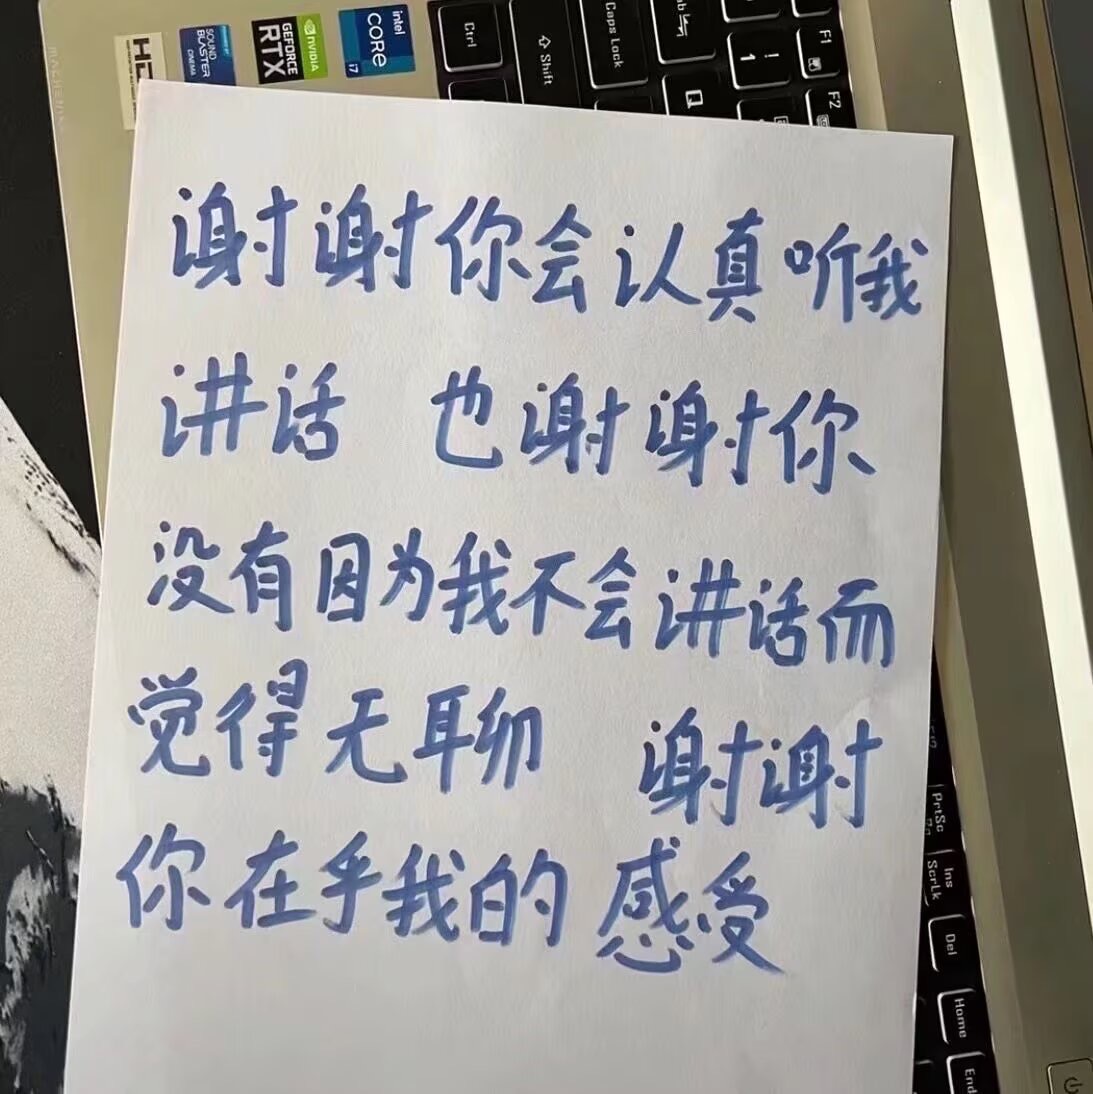 谢谢你会认真听我
讲话 也谢谢你
没有因为我不会讲话而
觉得无聊 谢谢
你在乎我的感受
SOUND
BLASTER
CINEMA
GEFORCE
RTX
NVIDIA
intel
CORE
i7
Ctrl
Shift
Caps Lock
Q
!
1
F1
F2
PrtSc
Ins
ScrLk
Del
Home
End